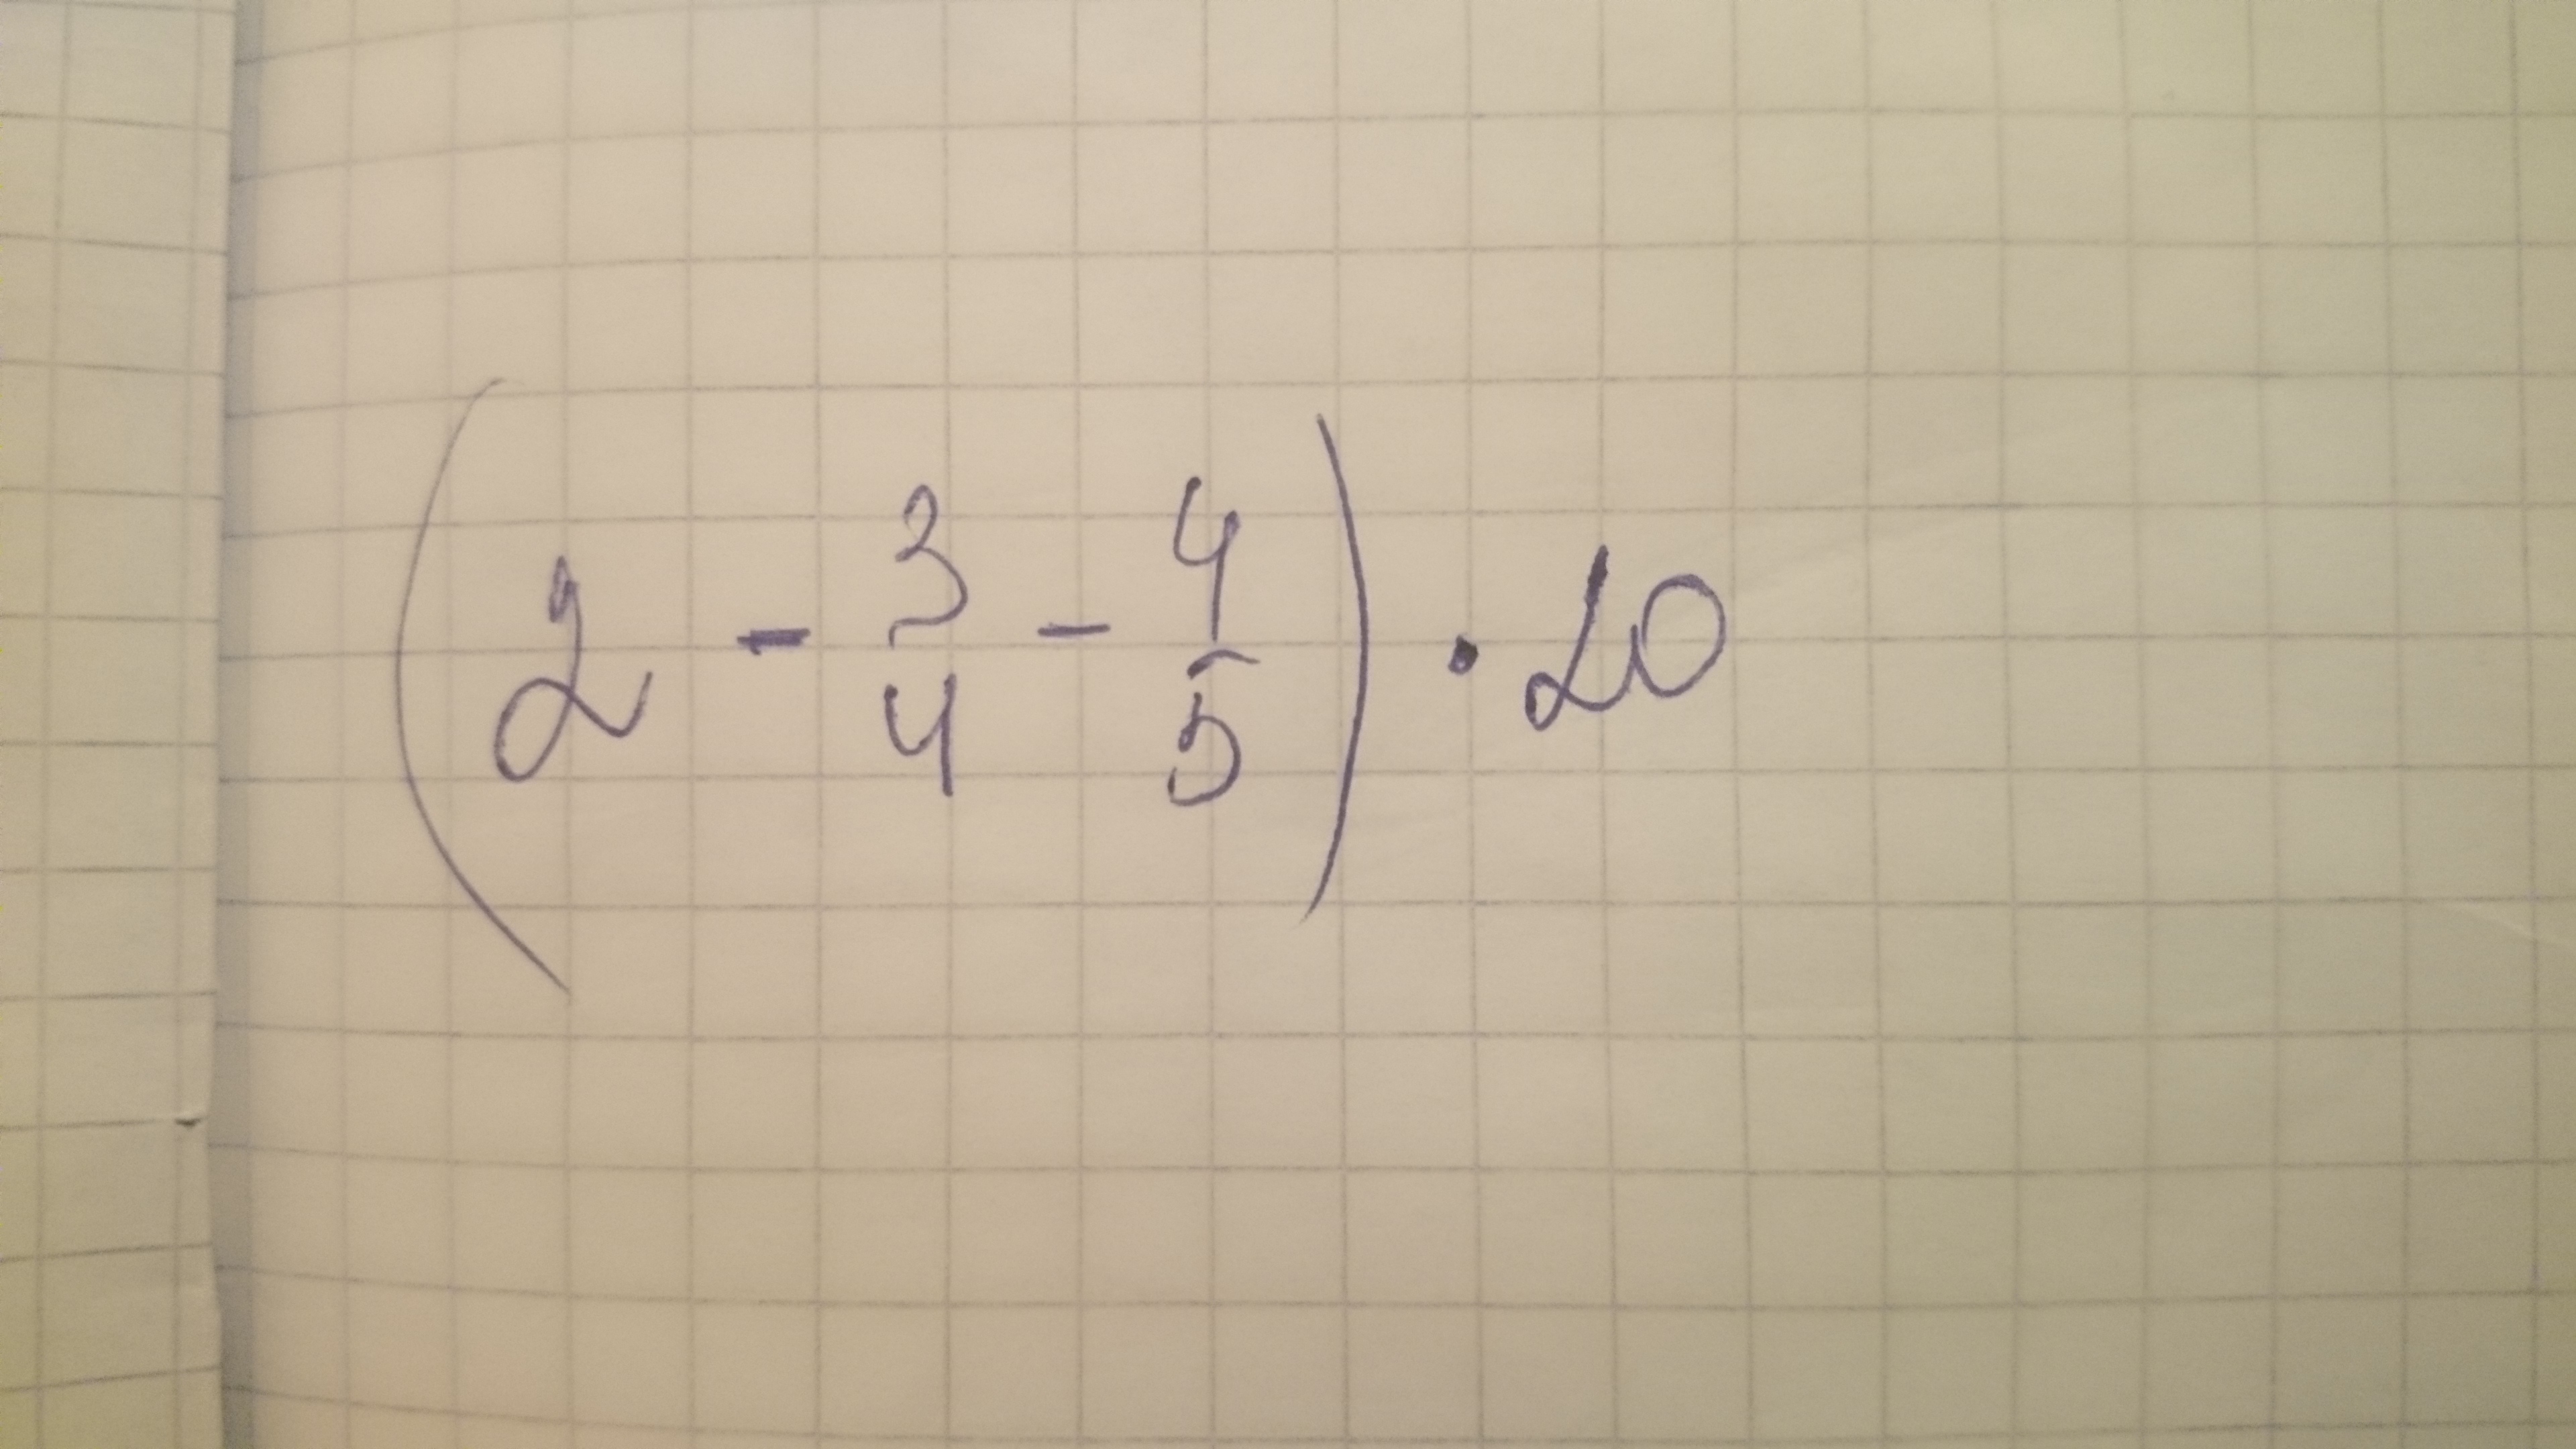 (2 - 3/4 - 4/5) · 20